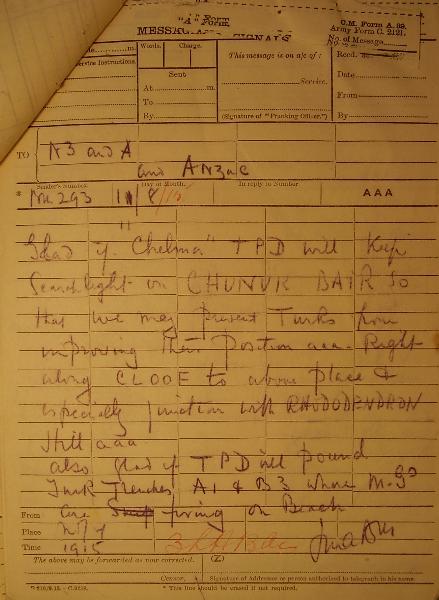 "A" Form
MESSAGES AND SIGNALS
C.M. Form A. 29.
Army Form C. 2121.
No. of Message
m.
Service Instructions.
Words. Charge.
This message is on a/c of:
Recd.
Sent
Date
At m.
Service.
To
From
By
(Signature of "Franking Officer.")
By
TO NZ and A
and ANZAC
Sender's Number. Day of Month. In reply to Number AAA
293 11/8/15
Glad if "Chelmer" TPD will keep
Searchlight on CHUNUK BAIR so
that we may prevent Turks from
improving their position aaa Right
along to above place &
especially junction with RHODODENDRON
Hill aaa
also glad if TPD will pound
Turk Trenches A1 & B3 where M.Gs
are firing on Beach
From
Place
Time 1915
The above may be forwarded as now corrected. (Z)
Censor. Signature of Addressor or person authorised to telegraph in his name.
* This line should be erased if not required.